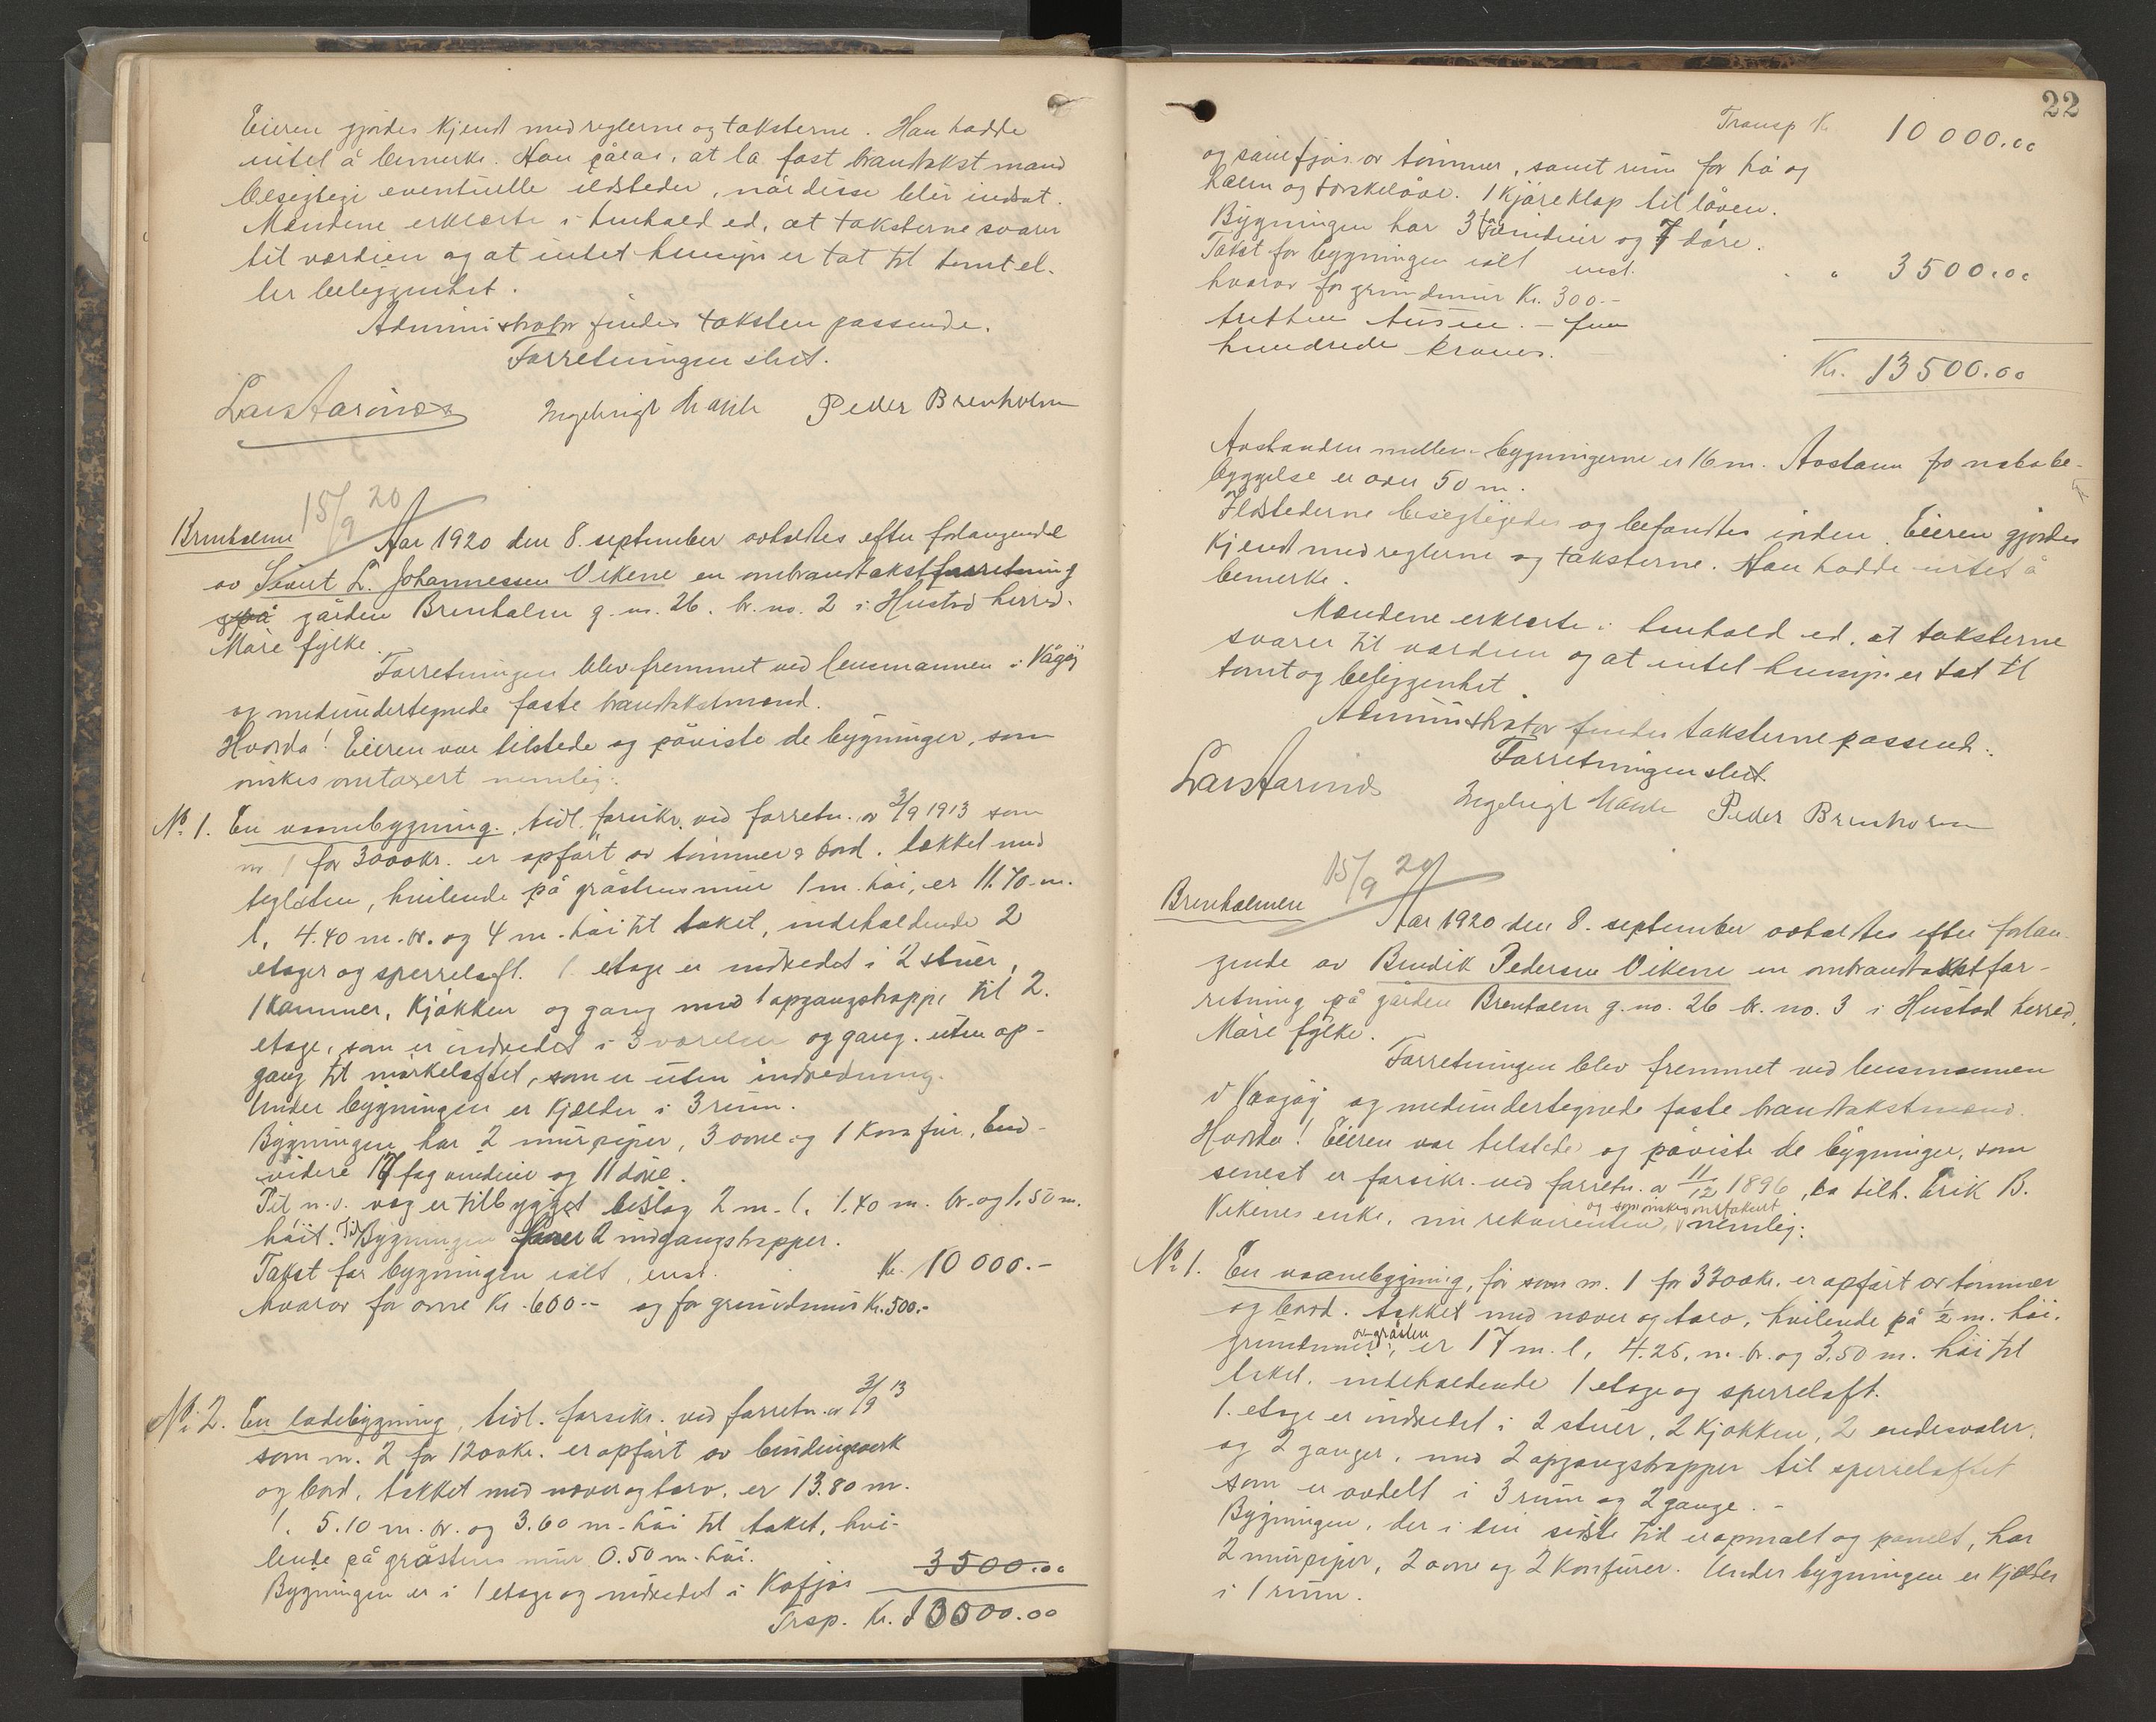 Eieren gjordes kjendt med reglerne og taksterne. Han hadde
intet å bemerke. Han pålas, at la fast brandtakst mand
besigtige eventuelle ildsteder, når disse blir indsat.
Mændene erklærte i henhold ed, at taksterne svarer
til værdien og at intet hensyn er tat til tomt el-
ler beliggenhet.
Administrator findes taksten passende.
Forretningen slut.
Lars Aarønes Ingebrigt Peder Brenholm
15/9 20
Brenholmen Aar 1920 den 8. september avholdtes efter forlangende
av Sivert L. Johannessen Vikene en ombrandtakstforretning
på gården Brenholm g. no. 26. br. no. 2 i Hustad herred.
Møre fylke.
Forretningen blev fremmet ved lensmannen i Vågøy
og medundertegnede faste brandtakstmænd.
Hvorda! Eieren var tilstede og påviste de bygninger, som
ønskes omtaxert nemlig:
No. 1. En vaanebygning, tidl. forsikr. ved forretn. av 3/9 1913 som
nr 1 for 3000 kr. er opført av tømmer & bord. tækket med
teglsten, hvilende på gråstensmur 1 m. høi, er 11.70 m.
l. 4.40 m. br. og 4 m. høi til taket, indeholdende 2
etager og sperreloft. 1. etage er indredet i 2 stuer,
1 kammer, kjøkken og gang med 1 opgangstrappe til 2.
etage, som er indredet i 3 værelser og gang. uten op-
gang til mørkeloftet, som er uten indredning.
Under bygningen er kjælder i 3 rum.
Bygningen har 2 murpiper, 3 ovne og 1 komfur. End-
videre 17 fag vinduer og 11 døre.
Til n.s. væg er tilbygget bislag 2 m. l. 1.40 m. br. og 1.50 m.
høit. Til Bygningen fører 2 indgangstrapper.
Takst for bygningen ialt, enst. Kr. 10 000.-
hvorav for ovne Kr. 600.- og for grundmur Kr. 500.-
No. 2. En ladebygning, tidl. forsikr. ved forretn. av 3/9 13
som nr. 2 for 1200 kr. er opført av bindingsverk
og bord, tækket med næver og torv, er 13.80 m.
l. 5.10 m. br. og 3.60 m. høi til taket, hvi-
lende på gråstens mur 0.50 m. høi.
Bygningen er i 1 etage og indredet i Kofjøs 3500.00
Trsp. Kr. 13500.00
22
Transp Kr. 10 000.00
og sauefjøs av tømmer, samt rum for hø og
halm og torskelåve. 1 kjøreklop til låven.
Bygningen har 3 fag vinduer og 7 døre.
Takst for bygningen ialt enst. " 3500.00
hvorav for grundmur Kr. 300.-
tretten tusen - fem
hundrede kroner.
Kr. 13500.00
Avstanden mellem bygningerne er 16 m. Avstann fra nabobe-
byggelse er over 50 m.
Ildstederne besigtigedes og befandtes iorden. Eieren gjordes
kjendt med reglerne og taksterne. Han hadde intet å
bemerke.
Mændene erklærte i henhold ed, at taksterne
svarer til værdien og at intet hensyn er tat til
tomt og beliggenhet.
Administrator findes taksterne passende.
Forretningen slut.
Lars Aarønes Ingebrigt Peder Brenholm
15/9 20
Brenholmen Aar 1920 den 8. september avholdtes efter forlan-
gende av Bendik Pedersen Vikene en ombrandtakstfor-
retning på gården Brenholm g. no. 26 br. no. 3 i Hustad herred,
Møre fylke.
Forretningen blev fremmet ved lensmannen
i Vaagøy og medundertegnede faste brandtakstmænd.
Hvorda! Eieren var tilstede og påviste de bygninger, som
senest er forsikr. ved forretn. av 11/12 1896, da tilh. Erik B.
Vikenes enke, nu rekvirenten, og som ønskes omtaksert nemlig:
No. 1. En vaanebygning, før som nr. 1 for 3300 kr. er opført av tømmer
og bord. tækket med næver og torv, hvilende på 1/2 m. høi.
grundmur av gråsten, er 17 m. l. 4.25. m. br. og 3.50 m. høi til
taket. indeholdende 1 etage og sperreloft.
1. etage er indredet i 2 stuer, 2 kjøkken, 2 endesvaler,
og 2 ganger, med 2 opgangstrapper til sperreloftet
som er avdelt i 3 rum og 2 gange. -
Bygningen, der i den sidste tid er opmalt og panelt, har
2 murpiper, 2 ovne og 2 komfurer. Under bygningen er kjælder
i 1 rum.